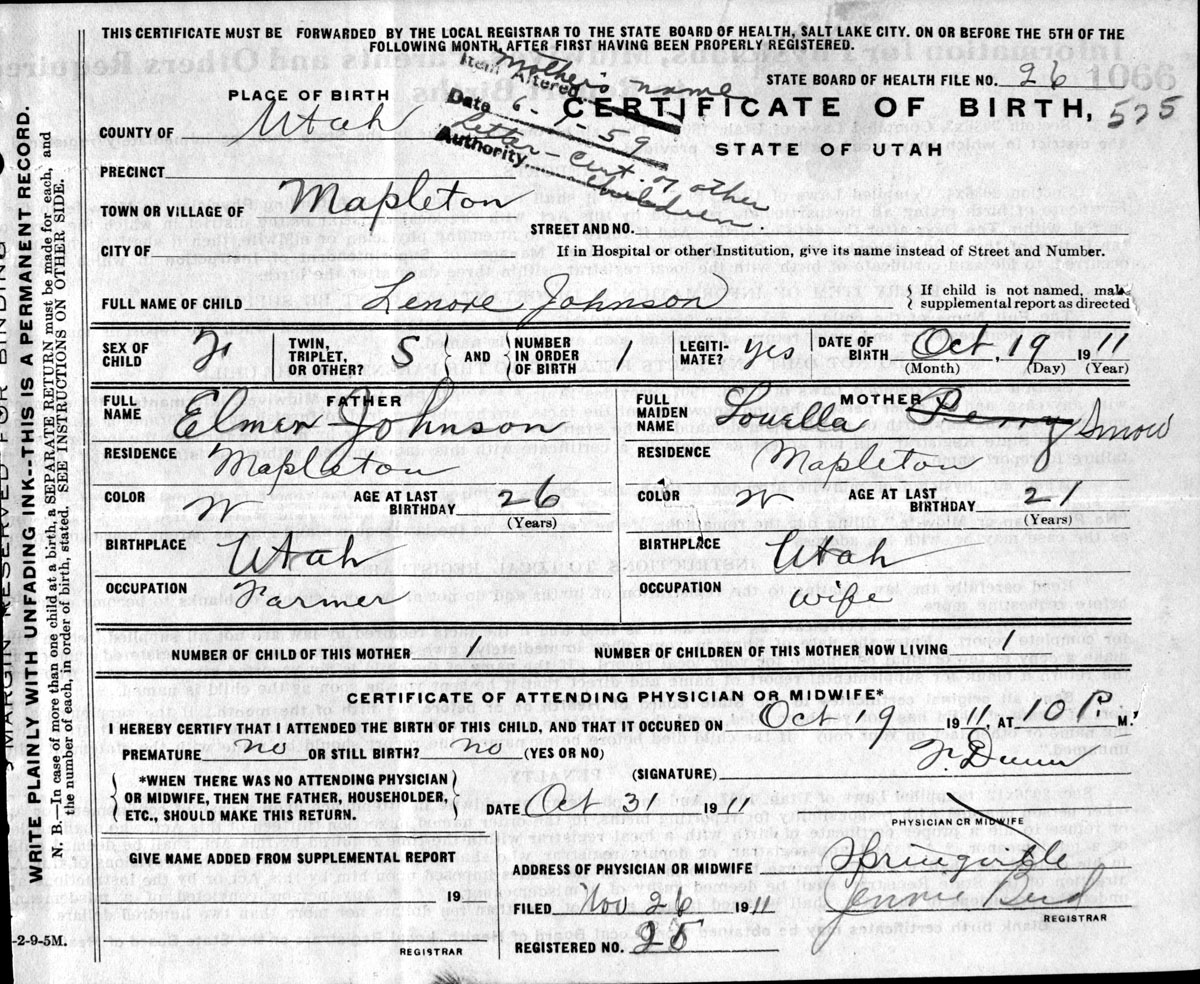 THIS CERTIFICATE MUST BE FORWARDED BY THE LOCAL REGISTRAR TO THE STATE BOARD OF HEALTH, SALT LAKE CITY. ON OR BEFORE THE 5TH OF THE
FOLLOWING MONTH, AFTER FIRST HAVING BEEN PROPERLY REGISTERED.
Item Altered Mother's name
Date 6-1-59
Authority Letter - Cert. of other
children
STATE BOARD OF HEALTH FILE NO. 26 1066
PLACE OF BIRTH
CERTIFICATE OF BIRTH, 525
COUNTY OF Utah
STATE OF UTAH
PRECINCT
TOWN OR VILLAGE OF Mapleton
STREET AND NO.
CITY OF
If in Hospital or other Institution, give its name instead of Street and Number.
FULL NAME OF CHILD Lenore Johnson { If child is not named, make
supplemental report as directed
SEX OF CHILD F TWIN, TRIPLET, OR OTHER? S AND NUMBER IN ORDER OF BIRTH 1 LEGITI-MATE? yes DATE OF BIRTH Oct, 19 1911
(Month) (Day) (Year)
FATHER
FULL NAME Elmer Johnson
RESIDENCE Mapleton
COLOR W AGE AT LAST BIRTHDAY 26
(Years)
BIRTHPLACE Utah
OCCUPATION Farmer
MOTHER
FULL MAIDEN NAME Louella Perry Snow
RESIDENCE Mapleton
COLOR W AGE AT LAST BIRTHDAY 21
(Years)
BIRTHPLACE Utah
OCCUPATION Wife
NUMBER OF CHILD OF THIS MOTHER 1 NUMBER OF CHILDREN OF THIS MOTHER NOW LIVING 1
CERTIFICATE OF ATTENDING PHYSICIAN OR MIDWIFE*
I HEREBY CERTIFY THAT I ATTENDED THE BIRTH OF THIS CHILD, AND THAT IT OCCURED ON Oct 19 1911, AT 10 P. M.,
PREMATURE no OR STILL BIRTH? no (YES OR NO)
(SIGNATURE) F. Dunn
*WHEN THERE WAS NO ATTENDING PHYSICIAN
OR MIDWIFE, THEN THE FATHER, HOUSEHOLDER,
ETC., SHOULD MAKE THIS RETURN.
DATE Oct 31 1911
PHYSICIAN OR MIDWIFE
GIVE NAME ADDED FROM SUPPLEMENTAL REPORT
19
REGISTRAR
ADDRESS OF PHYSICIAN OR MIDWIFE Springville
FILED Nov 26 1911
REGISTRAR
REGISTERED NO. 28
MARGIN RESERVED FOR BINDING
WRITE PLAINLY WITH UNFADING INK--THIS IS A PERMANENT RECORD.
N. B.—In case of more than one child at a birth, a SEPARATE RETURN must be made for each, and
the number of each, in order of birth, stated. SEE INSTRUCTIONS ON OTHER SIDE.
-2-9-5M.